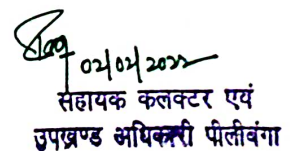 02/02/2022
सहायक कलक्टर एवं
उपखण्ड अधिकारी पीलीबंगा